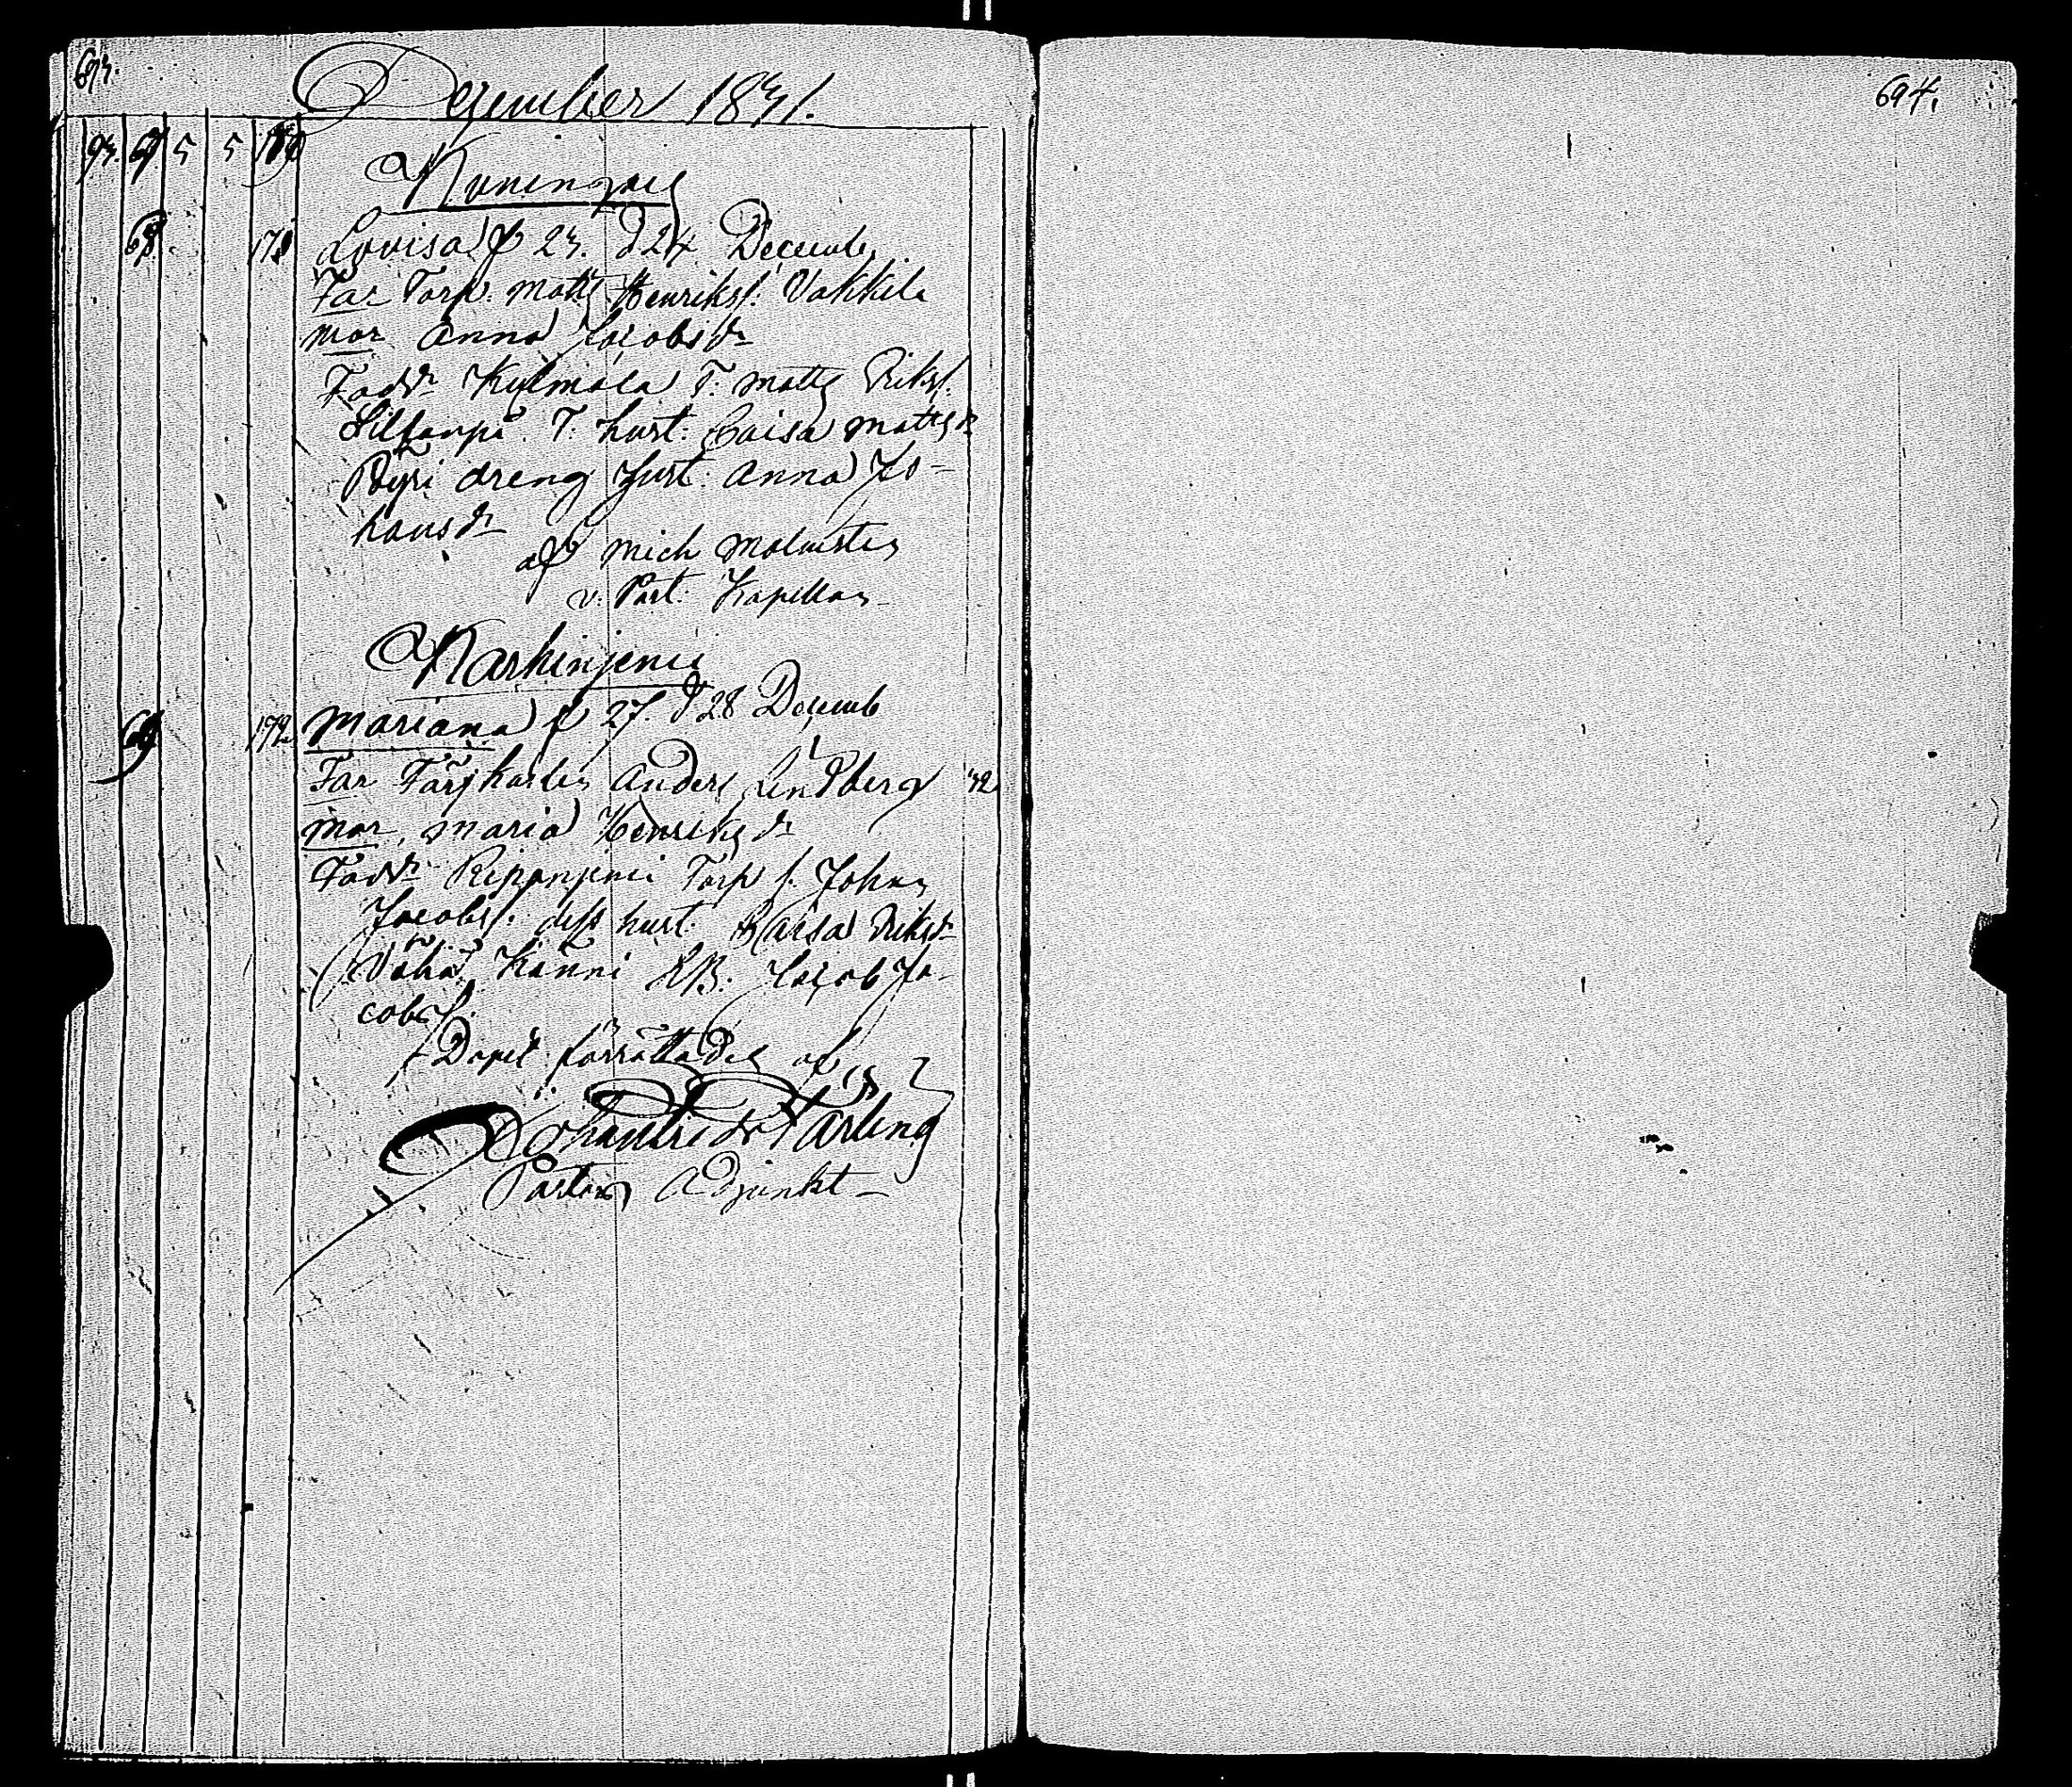 693.
December 1831.
93. 67 5 5 170
Koninques
68. 171 Lovisa f 23. d 24 December
Far Torp. Matts Henrikss: Vakkila
mor Anna Jacobsdr
Faddr Kylmälä T. Matts Eriks.
Sillanpä. T. hust: Caisa Mattsdr
Pyri dreng hust: Anna Jo-
hansdr
af Mich Malmsten
v: Past: Kapellan
Karhinjemi
69 172 Mariana f 27. d 28 Decemb
Far Färjkarlen Anders Lindberg 32
mor, Maria Henriksdr
Faddr Torp s. Johan
Jacobs. dess hust: Kaisa Eriksdr
Vähä Känni RB. Jacob Ja-
cobss.
Dopet förrättades af
Färling
Pastors Adjunkt
694.